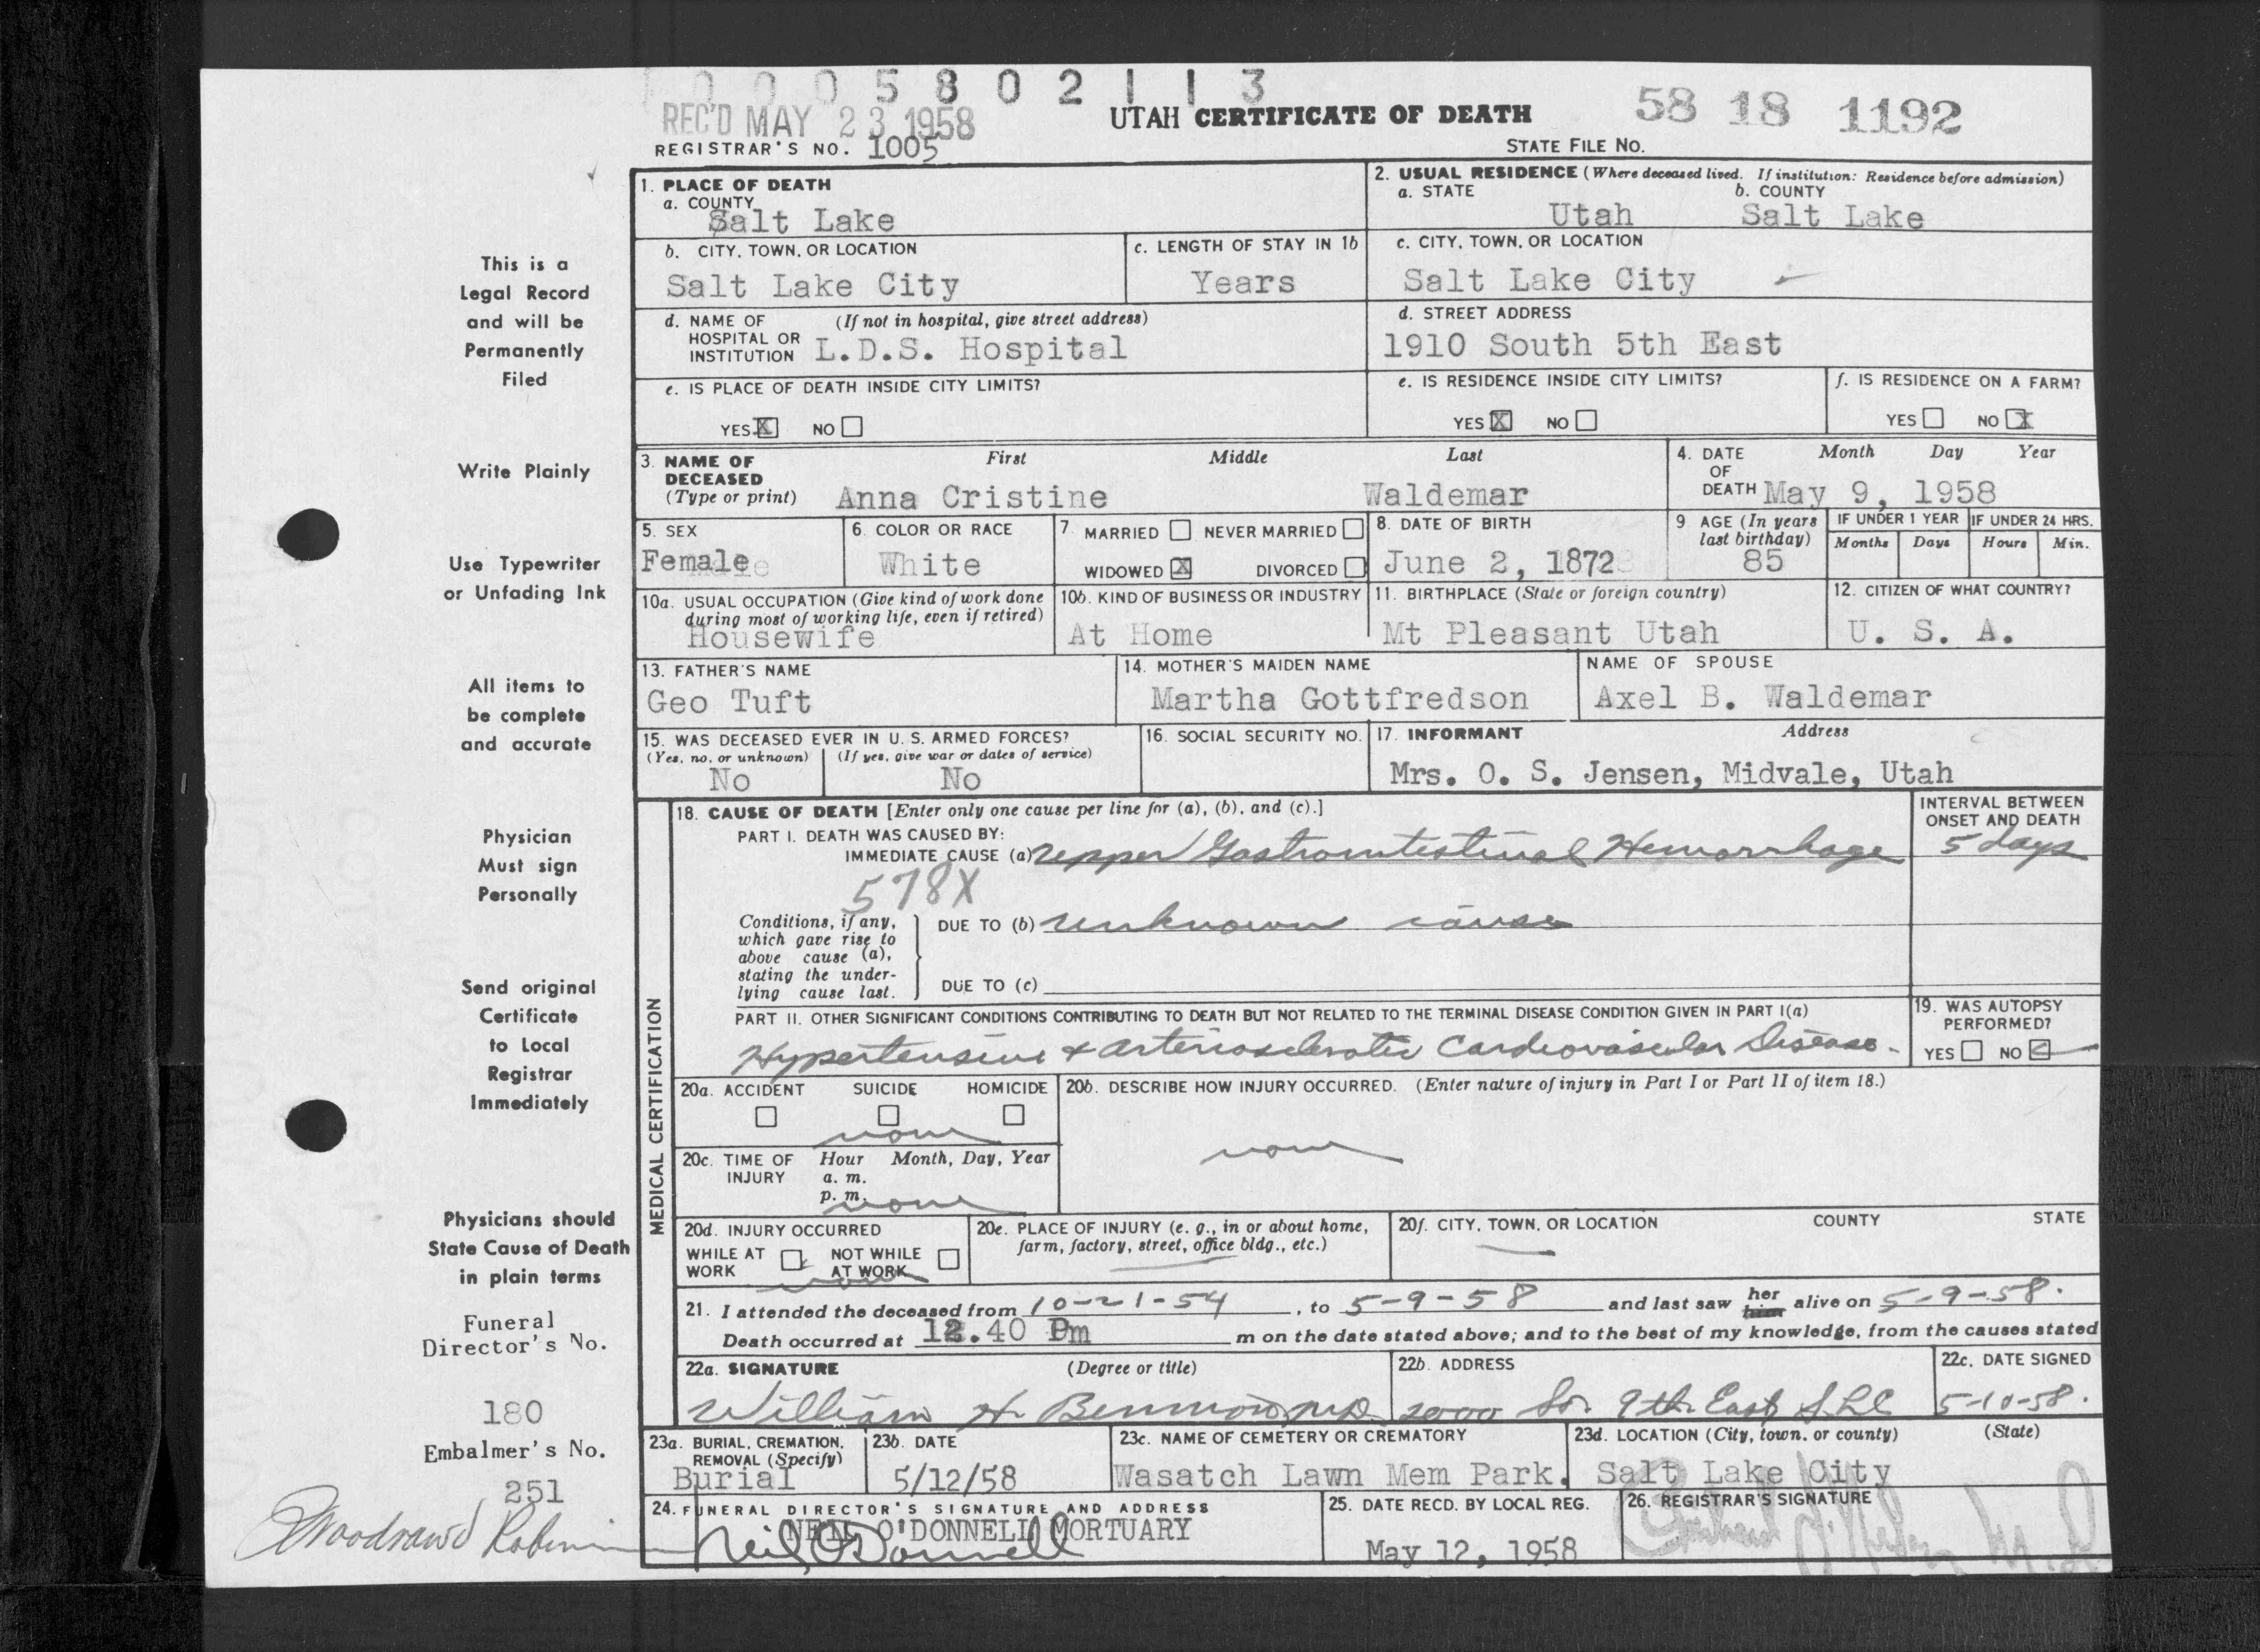 0 0 0 5 8 0 2 1 1 3
REC'D MAY 23 1958
UTAH CERTIFICATE OF DEATH
58 18 1192
REGISTRAR'S NO. 1005
STATE FILE NO.
1. PLACE OF DEATH
a. COUNTY
Salt Lake
2. USUAL RESIDENCE (Where deceased lived. If institution: Residence before admission)
a. STATE b. COUNTY
Utah Salt Lake
b. CITY, TOWN, OR LOCATION
Salt Lake City
c. LENGTH OF STAY IN 1b
Years
c. CITY, TOWN, OR LOCATION
Salt Lake City
d. NAME OF (If not in hospital, give street address)
HOSPITAL OR
INSTITUTION L.D.S. Hospital
d. STREET ADDRESS
1910 South 5th East
e. IS PLACE OF DEATH INSIDE CITY LIMITS?
YES X NO
e. IS RESIDENCE INSIDE CITY LIMITS?
YES X NO
f. IS RESIDENCE ON A FARM?
YES NO X
3. NAME OF First Middle Last
DECEASED
(Type or print) Anna Cristine Waldemar
4. DATE Month Day Year
OF
DEATH May 9, 1958
5. SEX
Female
6. COLOR OR RACE
White
7. MARRIED NEVER MARRIED
WIDOWED X DIVORCED
8. DATE OF BIRTH
June 2, 1872
9 AGE (In years
last birthday)
85
IF UNDER 1 YEAR IF UNDER 24 HRS.
Months Days Hours Min.
10a. USUAL OCCUPATION (Give kind of work done
during most of working life, even if retired)
Housewife
10b. KIND OF BUSINESS OR INDUSTRY
At Home
11. BIRTHPLACE (State or foreign country)
Mt Pleasant Utah
12. CITIZEN OF WHAT COUNTRY?
U. S. A.
13. FATHER'S NAME
Geo Tuft
14. MOTHER'S MAIDEN NAME
Martha Gottfredson
NAME OF SPOUSE
Axel B. Waldemar
15. WAS DECEASED EVER IN U. S. ARMED FORCES?
(Yes, no, or unknown) (If yes, give war or dates of service)
No No
16. SOCIAL SECURITY NO.
17. INFORMANT Address
Mrs. O. S. Jensen, Midvale, Utah
MEDICAL CERTIFICATION
18. CAUSE OF DEATH [Enter only one cause per line for (a), (b), and (c).]
INTERVAL BETWEEN
ONSET AND DEATH
PART I. DEATH WAS CAUSED BY:
IMMEDIATE CAUSE (a) Upper Gastrointestinal Hemorrhage 5 days
578X
Conditions, if any,
which gave rise to
above cause (a),
stating the under-
lying cause last.
DUE TO (b) unknown cause
DUE TO (c)
PART II. OTHER SIGNIFICANT CONDITIONS CONTRIBUTING TO DEATH BUT NOT RELATED TO THE TERMINAL DISEASE CONDITION GIVEN IN PART I(a)
Hypertensive & Arteriosclerotic Cardiovascular Disease.
19. WAS AUTOPSY
PERFORMED?
YES NO
20a. ACCIDENT SUICIDE HOMICIDE
none
20b. DESCRIBE HOW INJURY OCCURRED. (Enter nature of injury in Part I or Part II of item 18.)
none
20c. TIME OF Hour Month, Day, Year
INJURY a. m.
p. m. none
20d. INJURY OCCURRED
WHILE AT NOT WHILE
WORK AT WORK
none
20e. PLACE OF INJURY (e. g., in or about home,
farm, factory, street, office bldg., etc.)
20f. CITY, TOWN, OR LOCATION COUNTY STATE
21. I attended the deceased from 10-21-54, to 5-9-58 and last saw her him alive on 5-9-58.
Death occurred at 12.40 Pm m on the date stated above; and to the best of my knowledge, from the causes stated
22a. SIGNATURE (Degree or title)
William H. MD
22b. ADDRESS
2000 So. 9th East S.L.C
22c. DATE SIGNED
5-10-58.
23a. BURIAL, CREMATION,
REMOVAL (Specify)
Burial
23b. DATE
5/12/58
23c. NAME OF CEMETERY OR CREMATORY
Wasatch Lawn Mem Park.
23d. LOCATION (City, town, or county) (State)
Salt Lake City
24. FUNERAL DIRECTOR'S SIGNATURE AND ADDRESS
NEIL O'DONNELL MORTUARY
Neil O'Donnell
25. DATE RECD. BY LOCAL REG.
May 12, 1958
26. REGISTRAR'S SIGNATURE
This is a
Legal Record
and will be
Permanently
Filed
Write Plainly
Use Typewriter
or Unfading Ink
All items to
be complete
and accurate
Physician
Must sign
Personally
Send original
Certificate
to Local
Registrar
Immediately
Physicians should
State Cause of Death
in plain terms
Funeral
Director's No.
180
Embalmer's No.
251